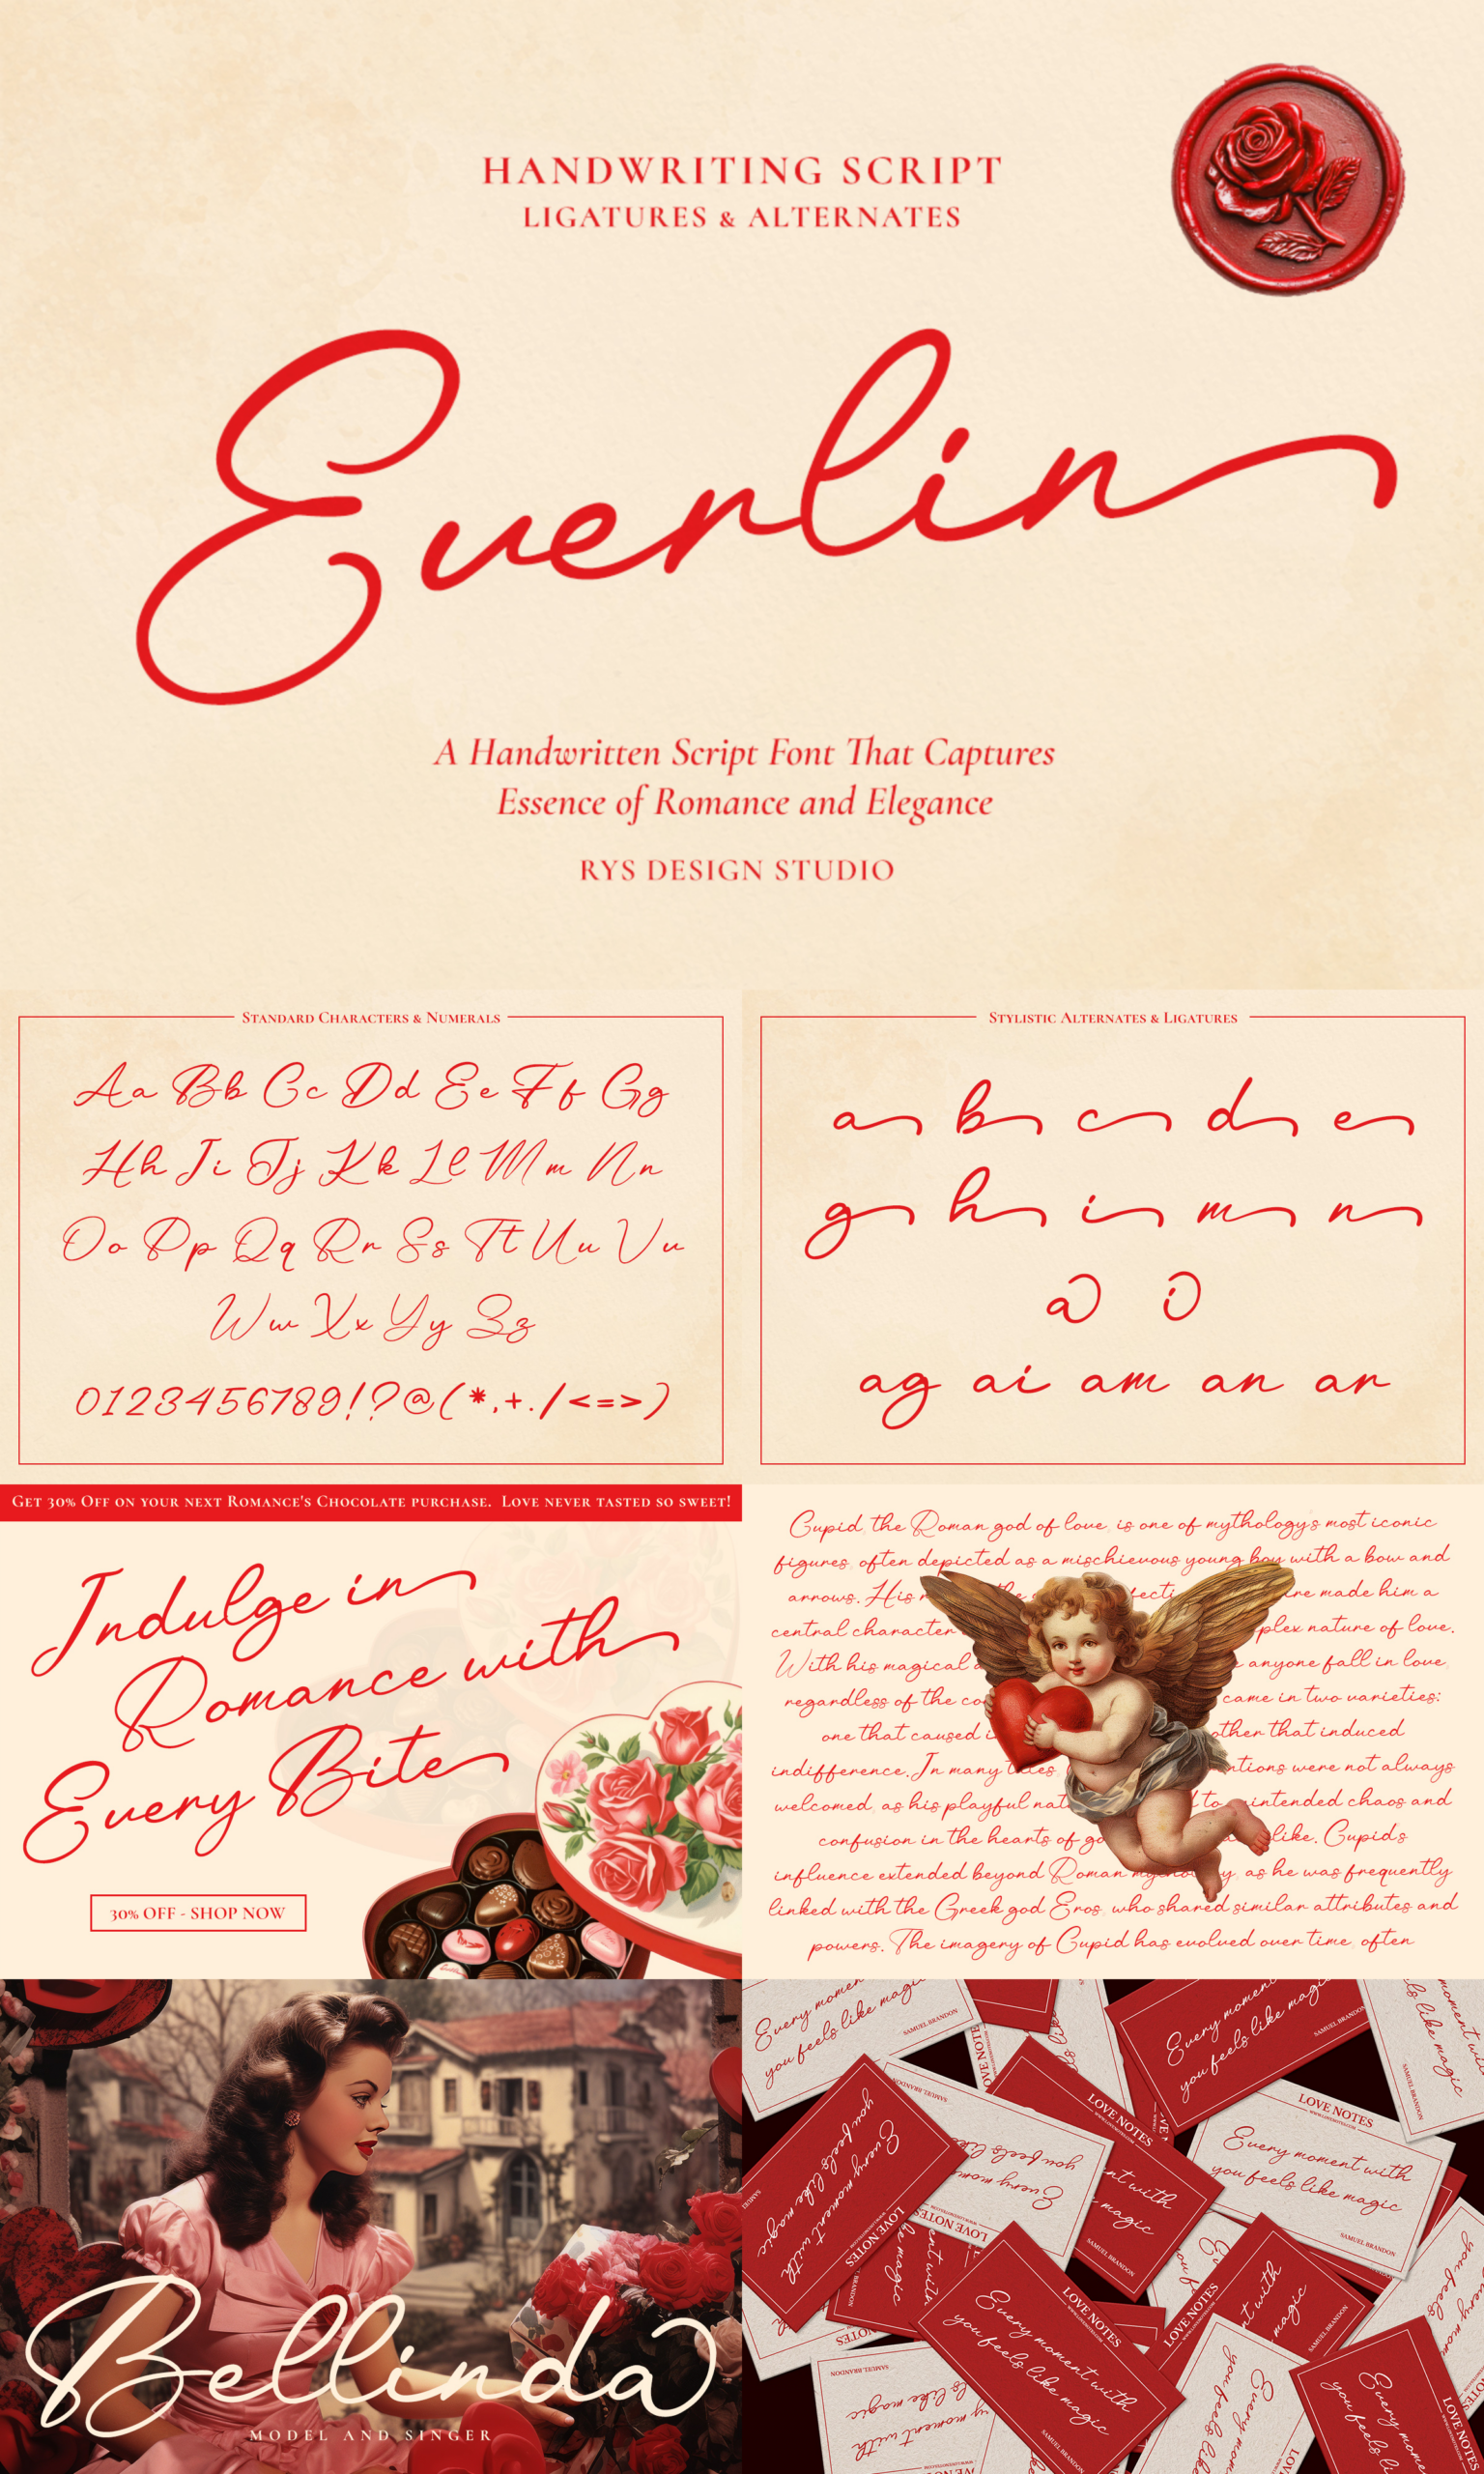 HANDWRITING SCRIPT
LIGATURES & ALTERNATES
Everlin
A Handwritten Script Font That Captures
Essence of Romance and Elegance
RYS DESIGN STUDIO
STANDARD CHARACTERS & NUMERALS
Aa Bb Cc Dd Ee Ff Gg
Hh Ii Jj Kk Ll Mm Nn
Oo Pp Qq Rr Ss Tt Uu Vv
Ww Xx Yy Zz
0123456789!?@(*,+./<=>)
STYLISTIC ALTERNATES & LIGATURES
a b c d e
g h i m n
a i
ag ai am an ar
GET 30% OFF ON YOUR NEXT ROMANCE'S CHOCOLATE PURCHASE. LOVE NEVER TASTED SO SWEET!
Indulge in
Romance with
Every Bite
30% OFF - SHOP NOW
Cupid, the Roman god of love, is one of mythology's most iconic
figures, often depicted as a mischievous young boy with a bow and
arrows. His made him a
central character nature of love.
With his magical anyone fall in love,
regardless of the came in two varieties:
one that caused other that induced
indifference. In many were not always
welcomed, as his playful to unintended chaos and
confusion in the hearts of like. Cupid's
influence extended beyond Roman as he was frequently
linked with the Greek god Eros, who shared similar attributes and
powers. The imagery of Cupid has evolved over time, often
Bellinda
MODEL AND SINGER
Every moment
you feels like magic
SAMUEL BRANDON
Every moment
you feels like magic
SAMUEL BRANDON
LOVE NOTES
LOVE NOTES
Every moment with
you feels like magic
SAMUEL BRANDON
Every moment with
you feels like magic
LOVE NOTES
LOVE NOTES
SAMUEL BRANDON
LOVE NOTES
Every moment with
you feels like magic
SAMUEL BRANDON
LOVE NOTES
SAMUEL BRANDON
LOVE NOTES